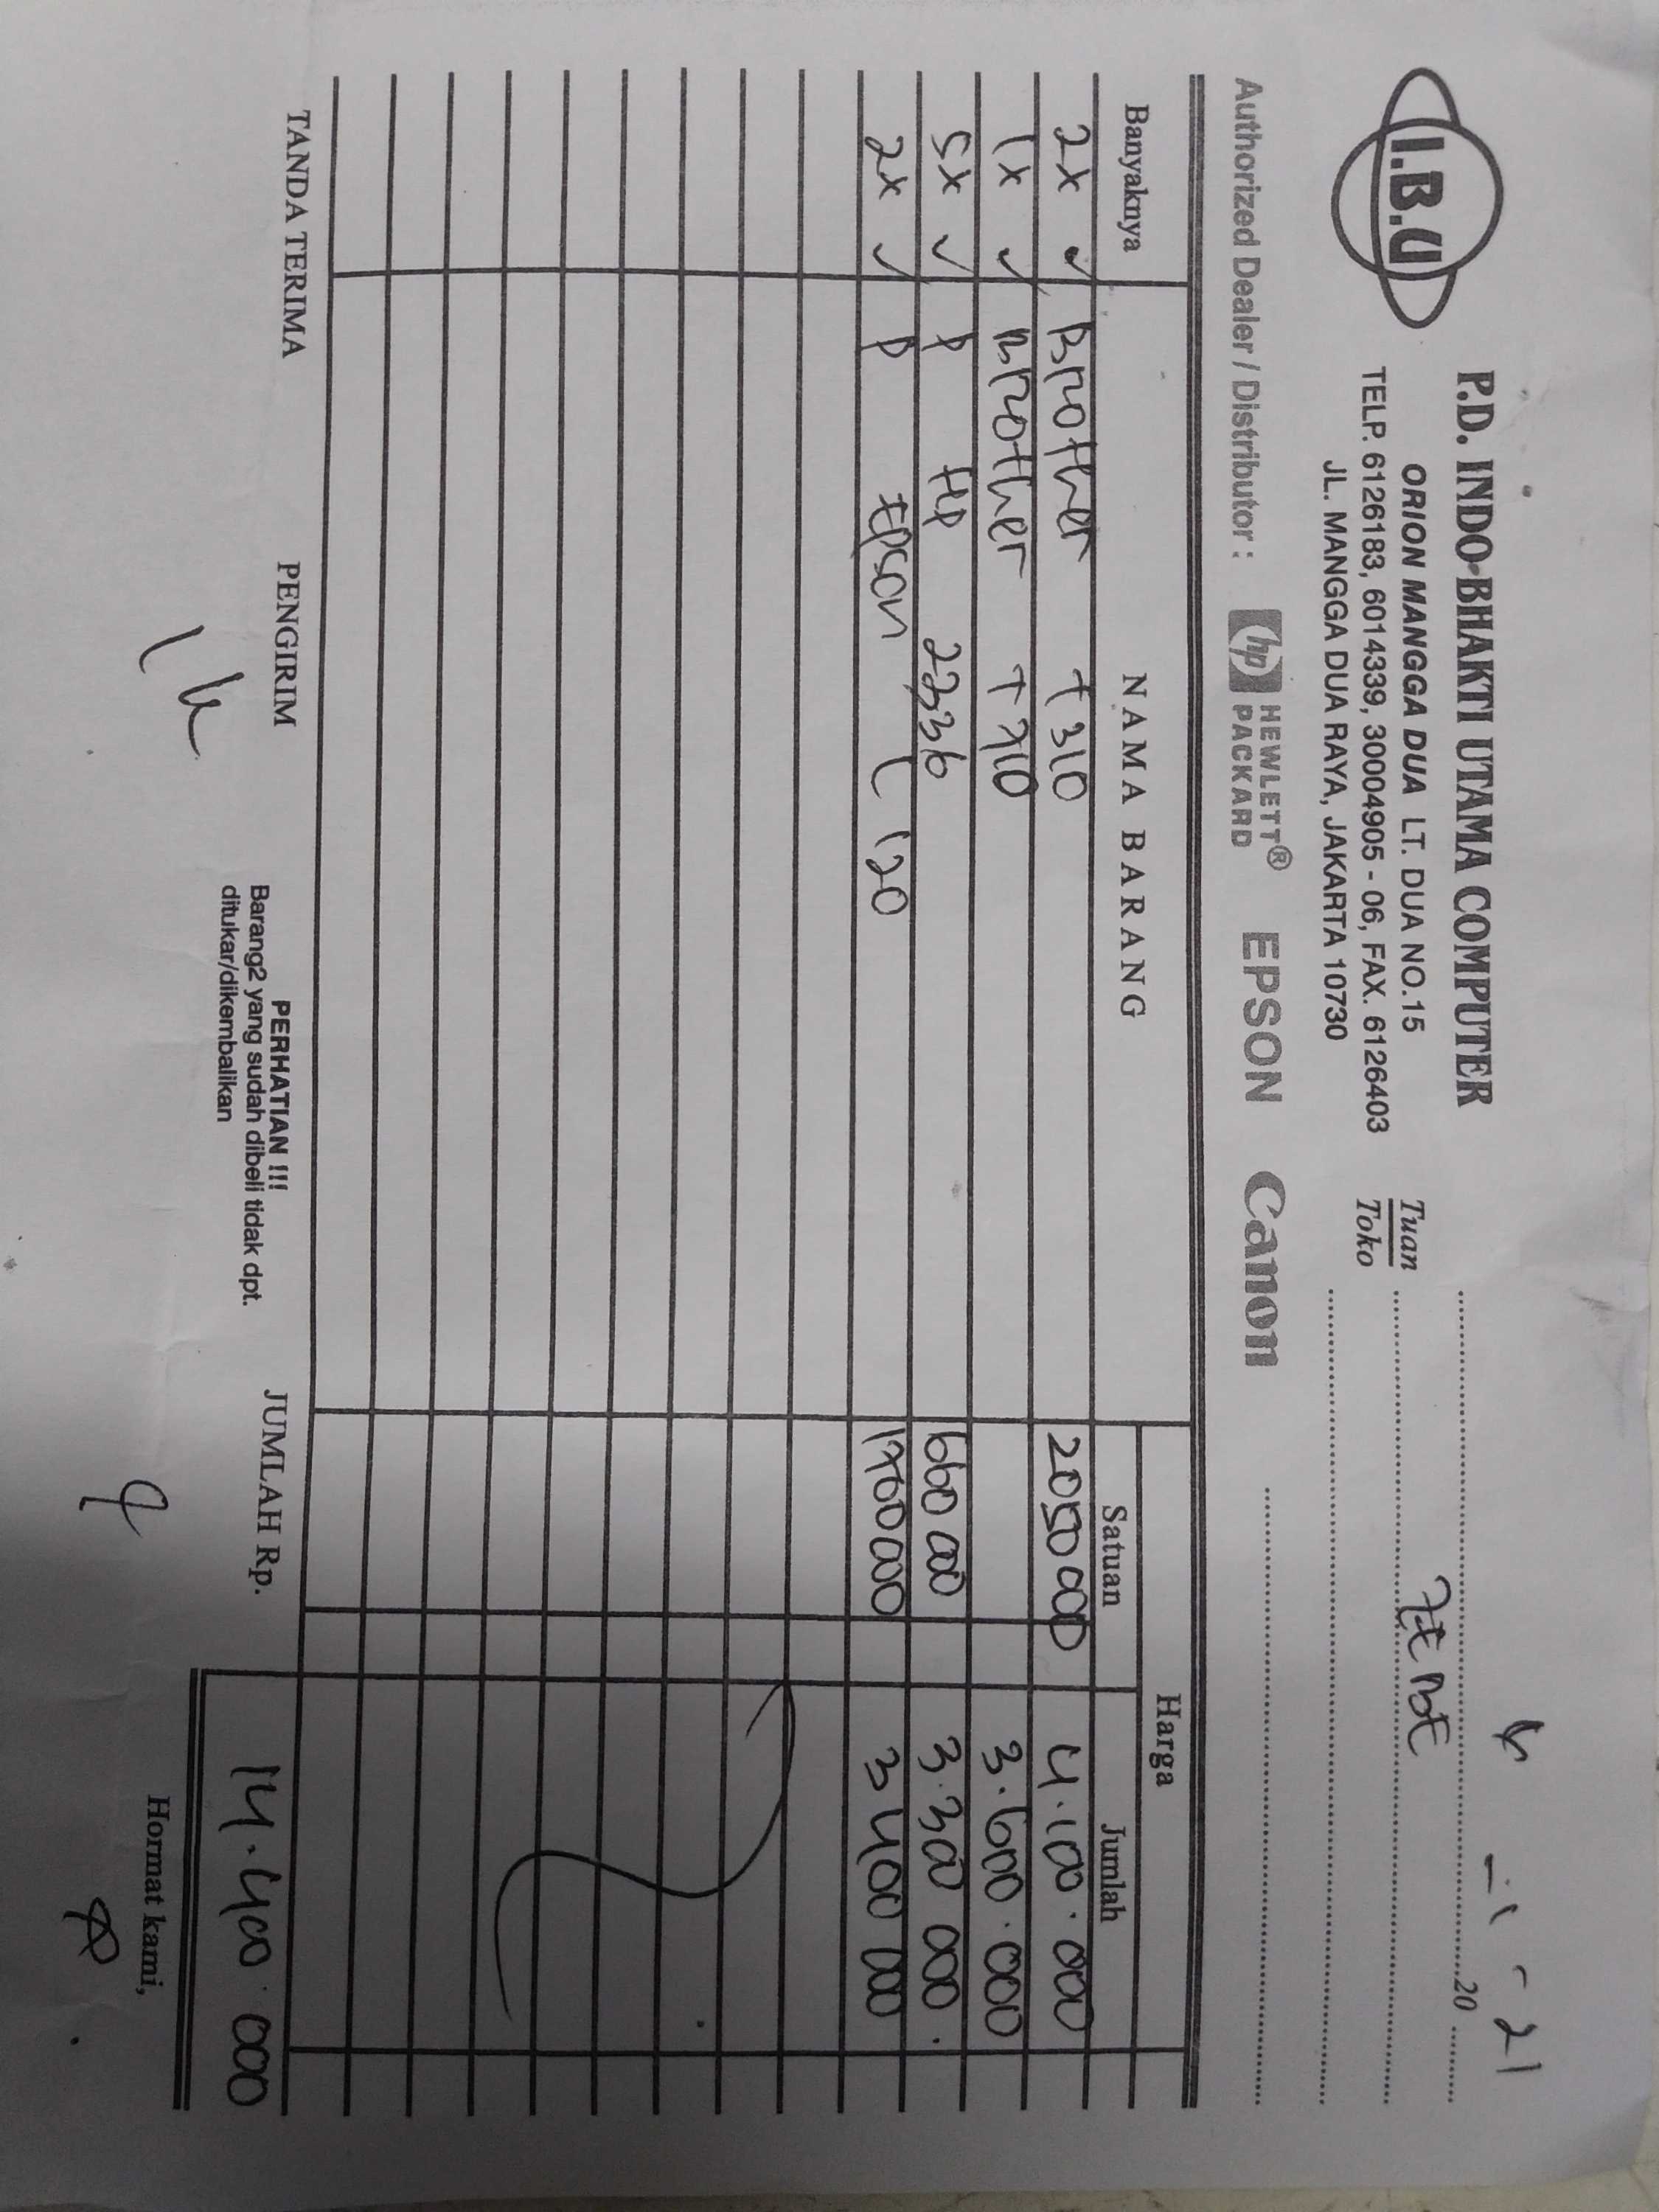 I.B.U
P.D. INDO-BHAKTI UTAMA COMPUTER
ORION MANGGA DUA LT. DUA NO.15
TELP. 6126183, 6014339, 30004905 - 06, FAX. 6126403
JL. MANGGA DUA RAYA, JAKARTA 10730
-21
20
Tuan
Toko
Authorized Dealer / Distributor : hp HEWLETT® PACKARD EPSON Canon
Banyaknya NAMA BARANG Harga
Satuan Jumlah
2x Brother T310 2050000 4.100.000
1x Brother T710 3.600.000
5x P HP 2336 660000 3.300 000.
2x P Epson L 120 1700000 3 400 000
TANDA TERIMA PENGIRIM JUMLAH Rp. 14.400.000
PERHATIAN !!!
Barang2 yang sudah dibeli tidak dpt.
ditukar/dikembalikan
Hormat kami,